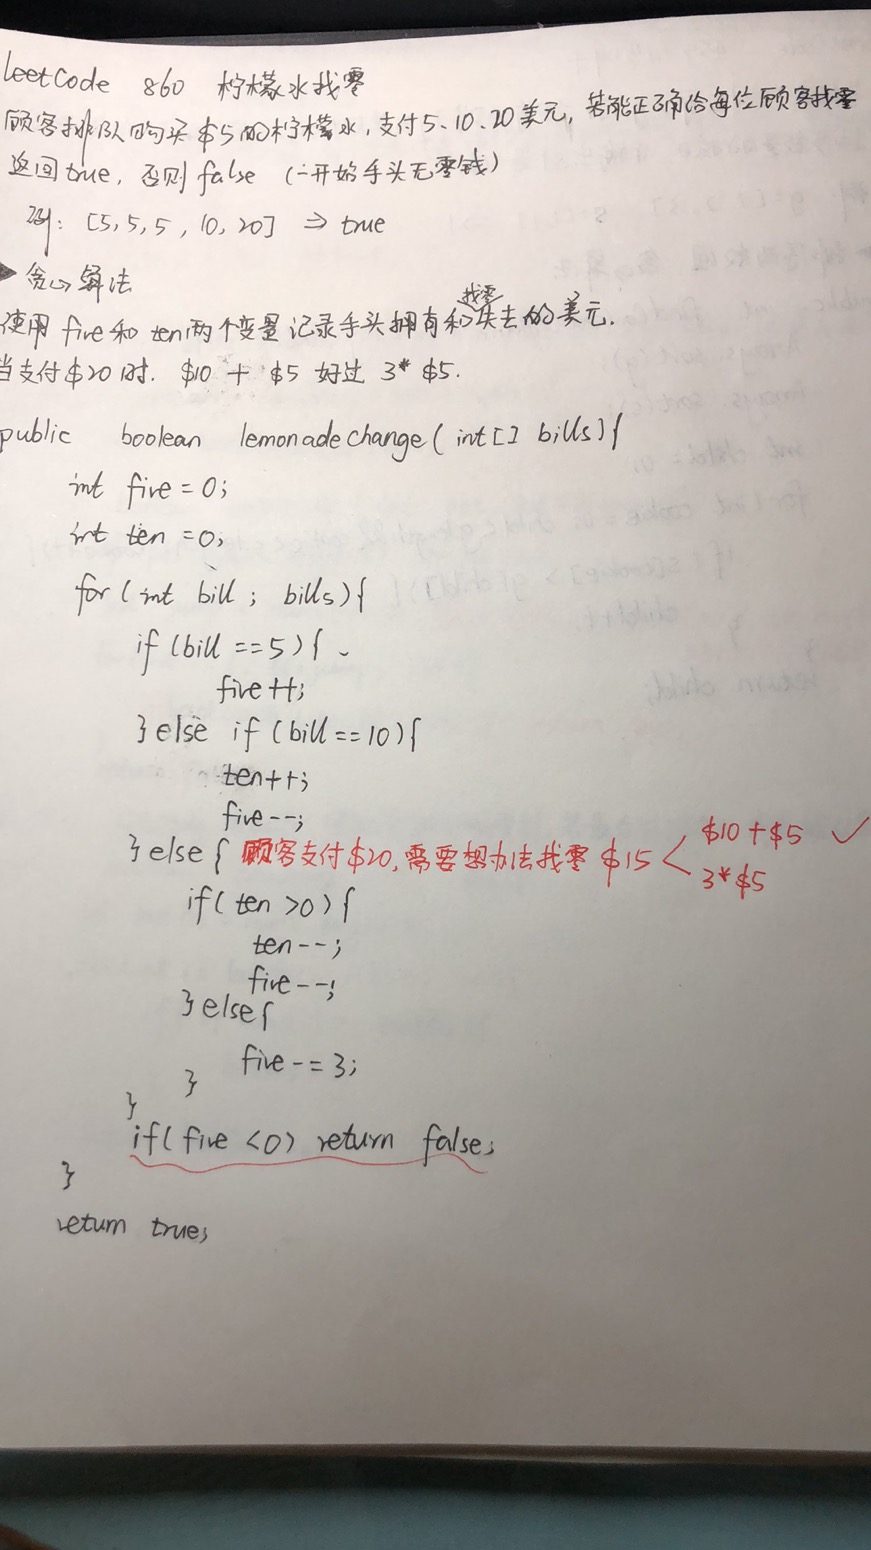 leetCode 860 柠檬水找零
顾客排队购买$5的柠檬水，支付5、10、20美元，若能正确给每位顾客找零
返回true，否则false（一开始手头无零钱）
例：[5,5,5,10,20] ⇒ true
贪心算法
使用five和ten两个变量记录手头拥有和找零失去的美元.
当支付$20时. $10 + $5 好过 3* $5.
public boolean lemonadechange(int[] bills){
int five = 0;
int ten = 0;
for(int bill ; bills){
if(bill == 5){
five++;
}else if(bill == 10){
ten++;
five--;
}else{ 顾客支付$20,需要想办法找零 $15 < $10+$5 ✓
3*$5
if(ten >0){
ten--;
five--;
}else{
five -= 3;
}
}
if(five <0) return false;
}
return true;